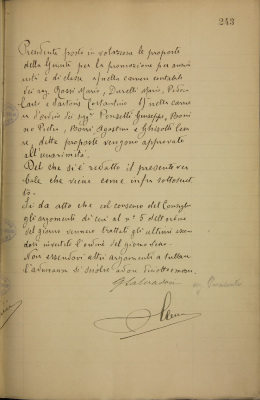 243
Prendenti posto in votazione le proposte
della Giunta per la promozione per anzia
nità e di classe a) nella carriera contabile
dei rag. Rossi Mario, Zuretti Mario,
Carlo e Santoni Costantino b) nella carrie
ra d'ordine dei sigg. Ponzetti Giuseppe,
Pietro, Agostino e Ghisolfi
dette proposte vengono approvate
all'unanimità.
Del che si è redatto il presente ver
bale che viene come infra sottoscrit
to.
Si dà atto che col consenso del Consiglio
gli argomenti di cui al n° 5 dell'ordine
del giorno vennero trattati gli ultimi essen
dosi invertito l'ordine del giorno
Non essendovi altri argomenti a trattare
l'adunanza si scioglie ad ore